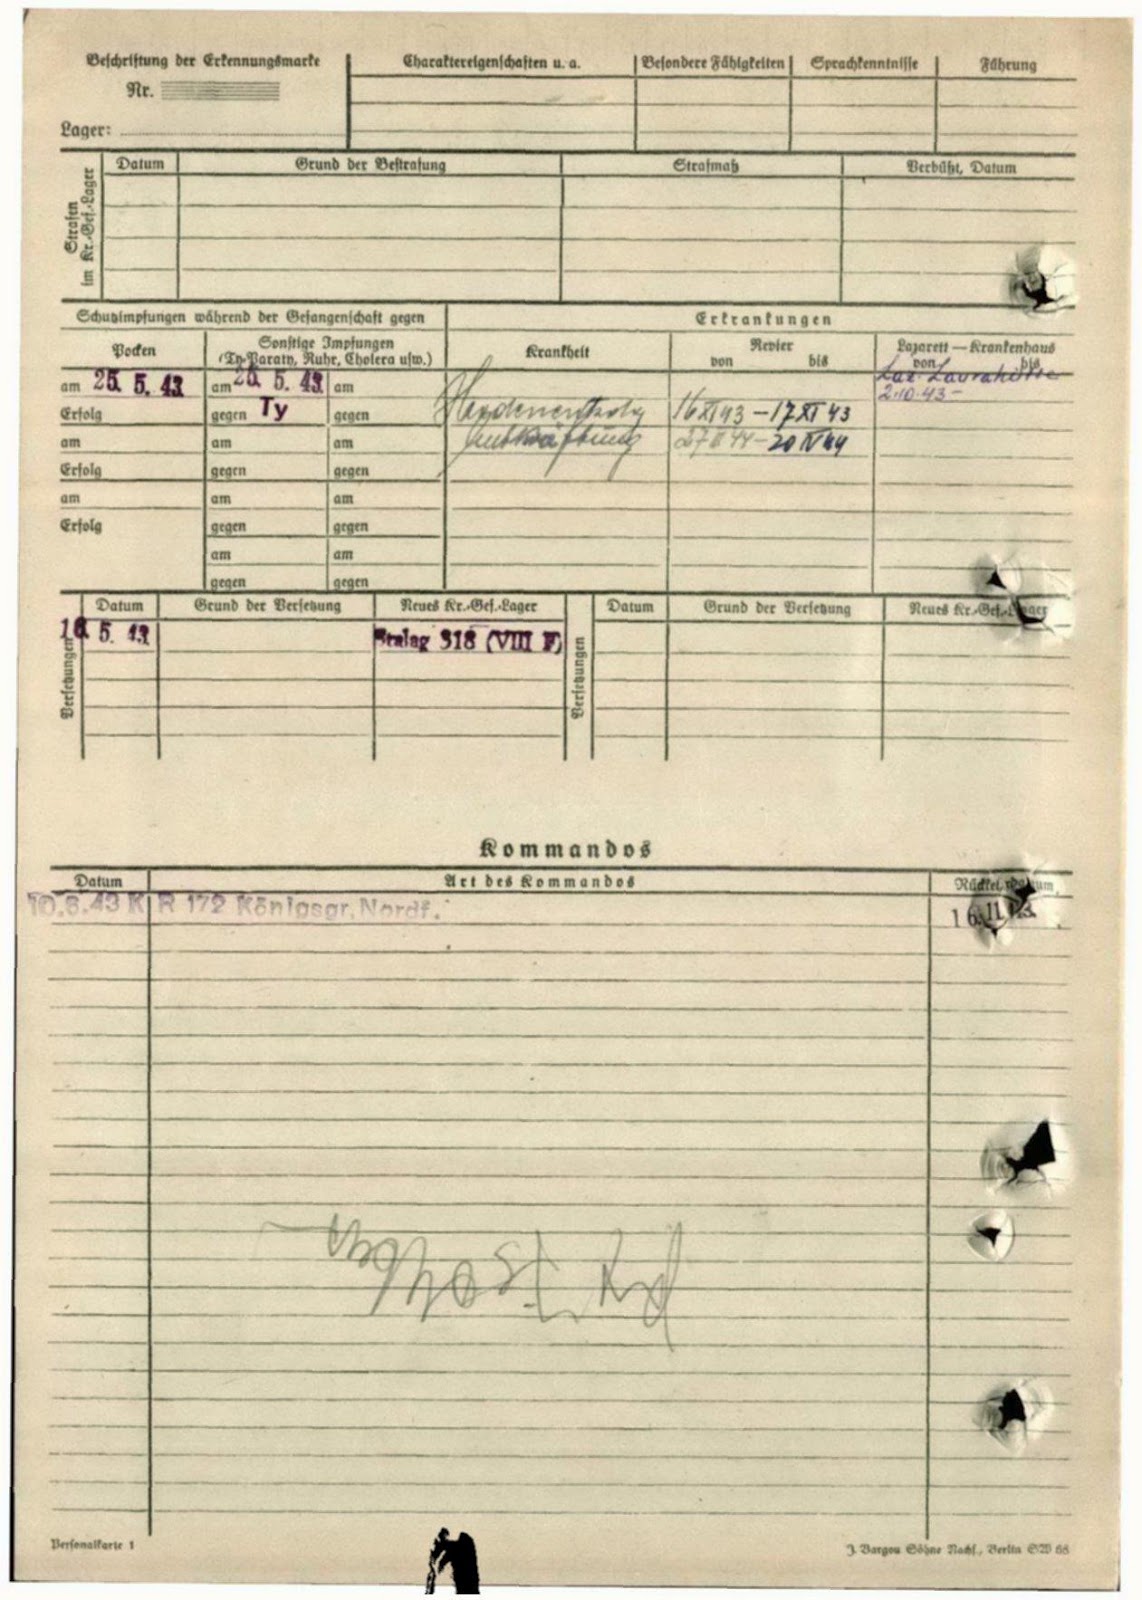 Beschriftung der Erkennungsmarke
Nr.
Lager:
Charaktereigenschaften u. a.
Besondere Fähigkeiten
Sprachkenntnisse
Führung
Strafen im Kr.-Gef.-Lager
Datum
Grund der Bestrafung
Strafmaß
Verbüßt, Datum
Schutzimpfungen während der Gefangenschaft gegen
Erkrankungen
Pocken
Sonstige Impfungen
(Ty-Paraty, Ruhr, Cholera usw.)
Krankheit
Revier
von bis
Lazarett — Krankenhaus
von bis
am 25. 5. 43 am 25. 5. 43 am
Laz. Laurahütte
2.10.43 –
Erfolg gegen Ty gegen
16 XI 43 – 17 XI 43
am am am
27 II 44 – 20 IV 44
Erfolg gegen gegen
am am am
Erfolg gegen gegen
am am
gegen gegen
Versetzungen
Datum Grund der Versetzung Neues Kr.-Gef.-Lager
16. 5. 43 Stalag 318 (VIII F)
Versetzungen
Datum Grund der Versetzung Neues Kr.-Gef.-Lager
Kommandos
Datum Art des Kommandos
10.6.43 K R 172 Königsgr. Nordf.
16. 11.
Personalkarte 1
J. Bargou Söhne Nachf., Berlin SW 68